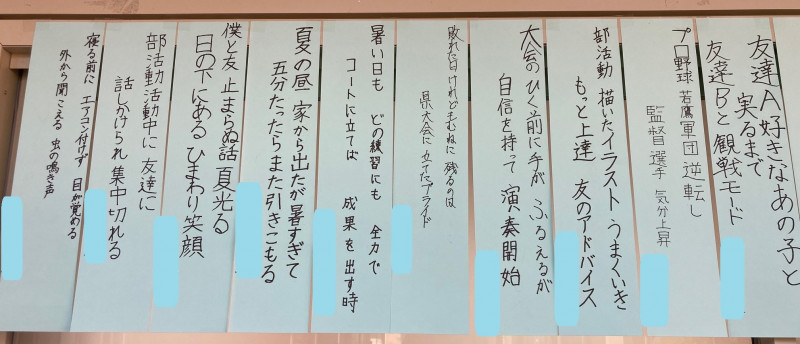 友達A好きなあの子と
実るまで
友達Bと観戦モード
プロ野球 若鷹軍団 逆転し
監督選手 気分上昇
部活動 描いたイラスト うまくいき
もっと上達 友のアドバイス
大会のひく前に手が ふるえるが
自信を持って 演奏開始
敗れた日 けれどもむねに 残るのは
県大会に 立てたプライド
暑い日も どの練習にも 全力で
コートに立てば 成果を出す時
夏の昼 家から出たが暑すぎて
五分たったらまた引きこもる
僕と友 止まらぬ話 夏光る
日の下にある ひまわり笑顔
部活動活動中に 友達に
話しかけられ 集中切れる
寝る前に エアコン付けず 目が覚める
外から聞こえる 虫の鳴き声